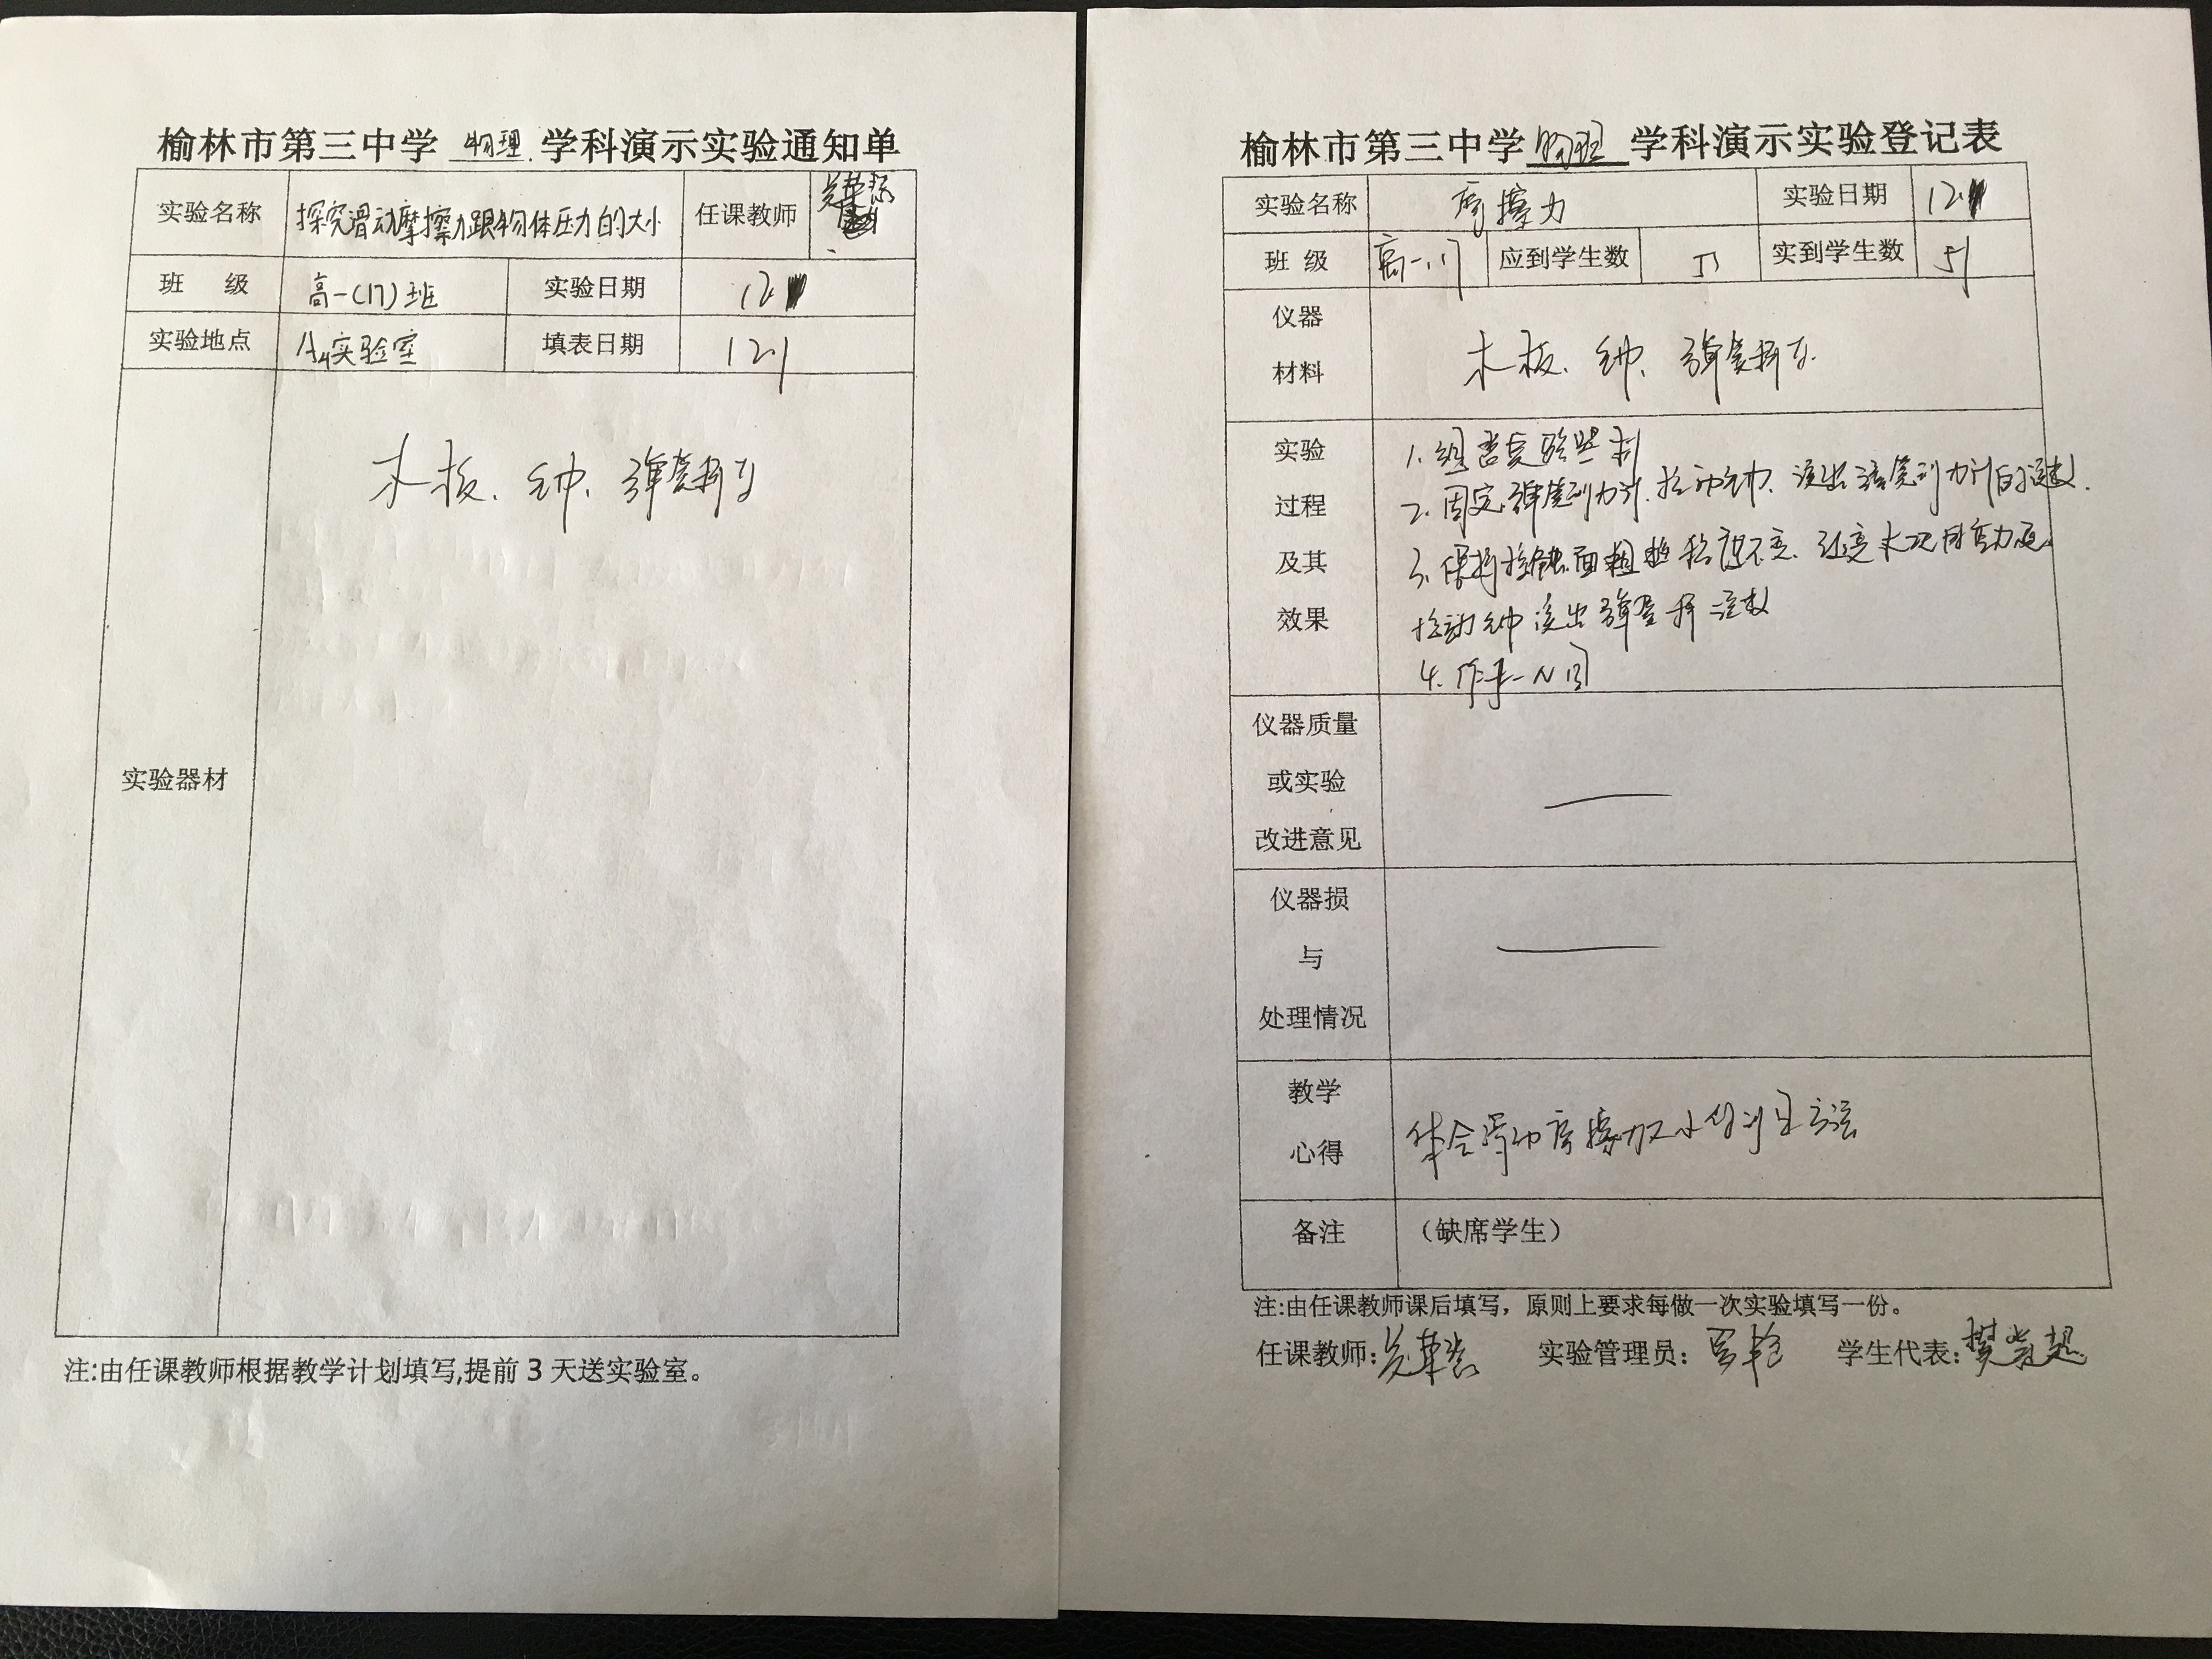 榆林市第三中学 物理 学科演示实验通知单
实验名称 探究滑动摩擦力跟物体压力的大小 任课教师
班 级 高一(17)班 实验日期 12.
实验地点 A4实验室 填表日期 12.1
实验器材
木板、钟、弹簧秤
注:由任课教师根据教学计划填写,提前 3 天送实验室。
榆林市第三中学 物理 学科演示实验登记表
实验名称 摩擦力 实验日期 12.
班 级 高一.17 应到学生数 51 实到学生数 51
仪器
材料
木板、钟、弹簧秤
实验
过程
及其
效果
1.组
2.固定弹簧测力计.拉动钟、读出弹簧测力计的读数.
3.保持接触面粗糙程度不变、
拉动钟读出弹簧秤读数
4.作f-N图
仪器质量
或实验
改进意见
仪器损
与
处理情况
教学
心得
体会滑动摩擦力大小的测定方法
备注 （缺席学生）
注:由任课教师课后填写，原则上要求每做一次实验填写一份。
任课教师: 实验管理员: 学生代表: